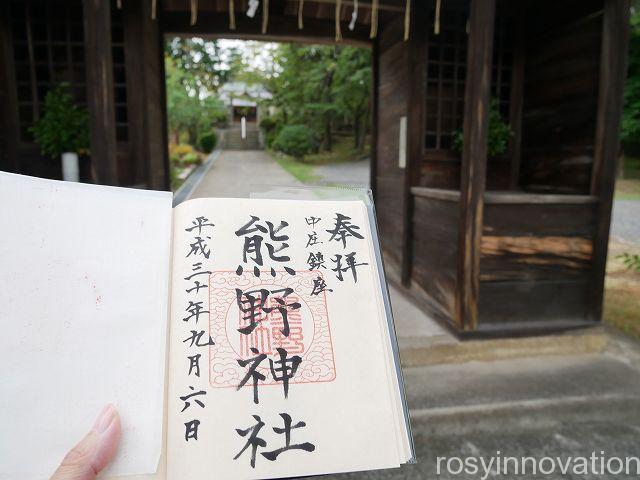 奉拝
中庄鎮座
熊野神社
平成三十年九月六日
rosyinnovation